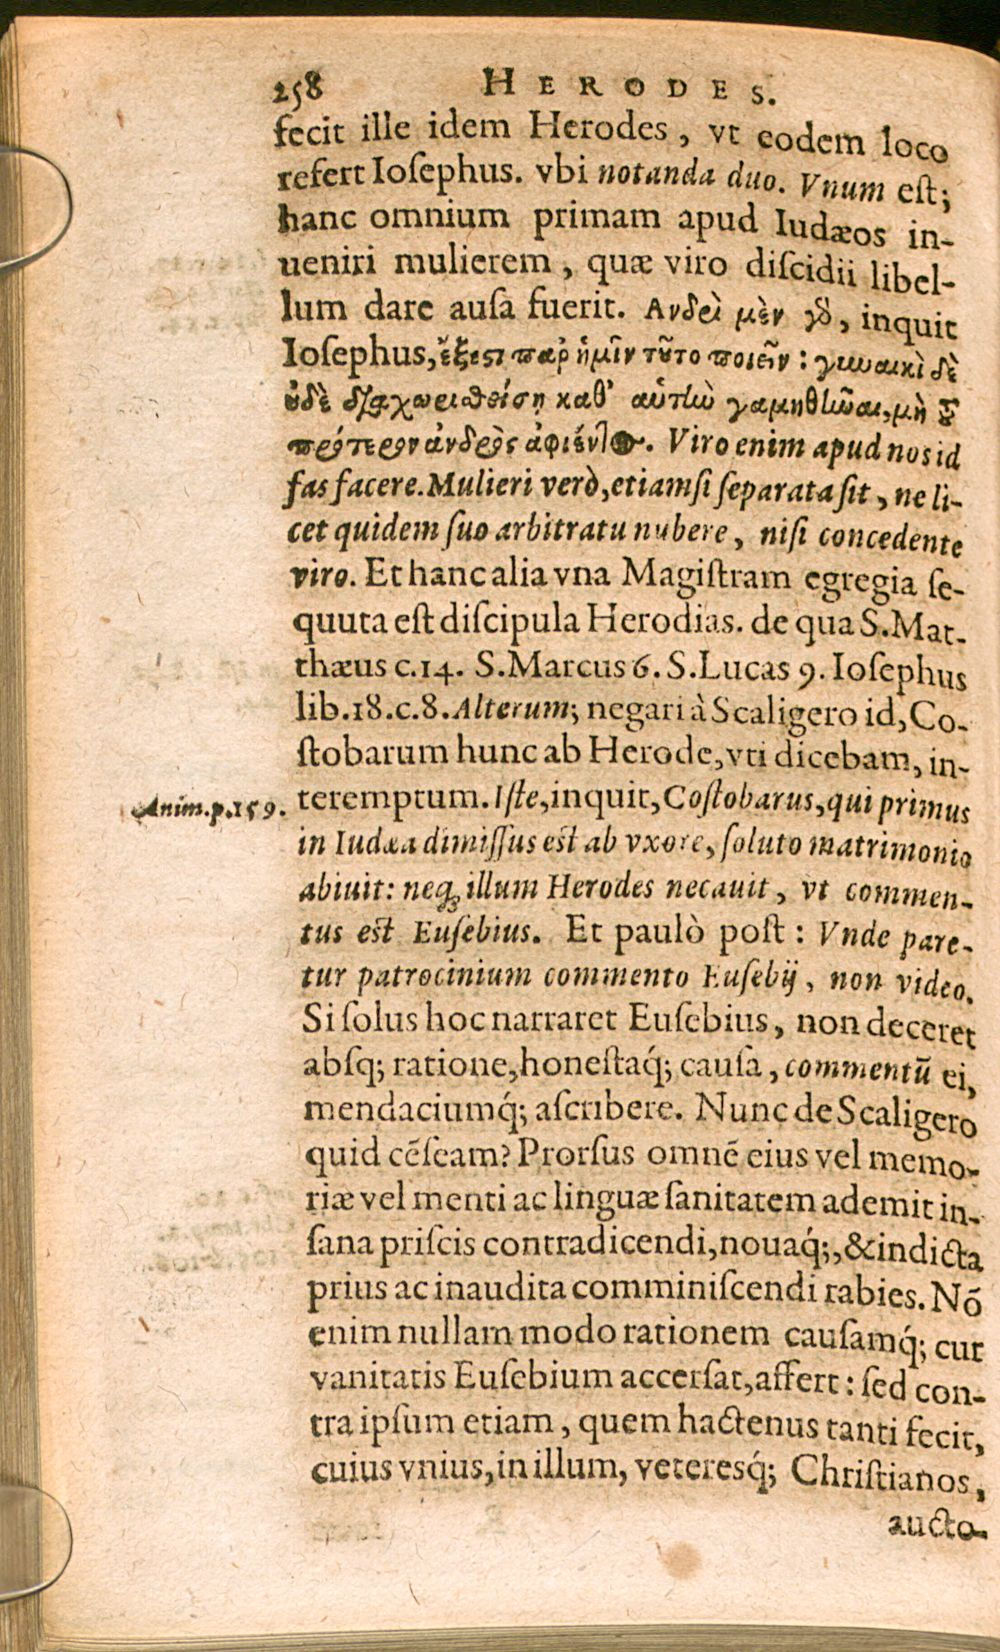 258 HERODES.
fecit ille idem Herodes, vt eodem loco
refert Iosephus. vbi notanda duo. Vnum est;
hanc omnium primam apud Iudæos in-
ueniri mulierem, quæ viro discidii libel-
lum dare ausa fuerit. Ανδεὶ μὲν γδ, inquit
Iosephus, ἔξεστι παρ' ἡμῖν τῦτο ποιεῖν: γυναικὶ δὲ
ὐδὲ διαχωρισθείση καθ' αὑτὴν γαμηθῆναι, μὴ τ̃
πρότερον ἀνδρὸς ἀφιέντος. Viro enim apud nos id
fas facere. Mulieri verò, etiamsi separata sit, ne li-
cet quidem suo arbitratu nubere, nisi concedente
viro. Et hanc alia vna Magistram egregia se-
quuta est discipula Herodias. de qua S. Mat-
thæus c.14. S. Marcus 6. S. Lucas 9. Iosephus
lib.18.c.8. Alterum; negari à Scaligero id, Co-
stobarum hunc ab Herode, vti dicebam, in-
Anim.p.159. teremptum. Iste, inquit, Costobarus, qui primus
in Iudæa dimissus est ab vxore, soluto matrimonio
abiuit: neq; illum Herodes necauit, vt commen-
tus est Eusebius. Et paulò post: Vnde pare-
tur patrocinium commento Eusebij, non video.
Si solus hoc narraret Eusebius, non deceret
absq; ratione, honestaq́; causa, commentũ ei,
mendaciumq́; ascribere. Nunc de Scaligero
quid cẽseam? Prorsus omnẽ eius vel memo-
riæ vel menti ac linguæ sanitatem ademit in-
sana priscis contradicendi, nouaq́;, & indicta
prius ac inaudita comminiscendi rabies. Nõ
enim nullam modo rationem causamq́; cur
vanitatis Eusebium accersat, affert: sed con-
tra ipsum etiam, quem hactenus tanti fecit,
cuius vnius, in illum, veteresq́; Christianos,
aucto-